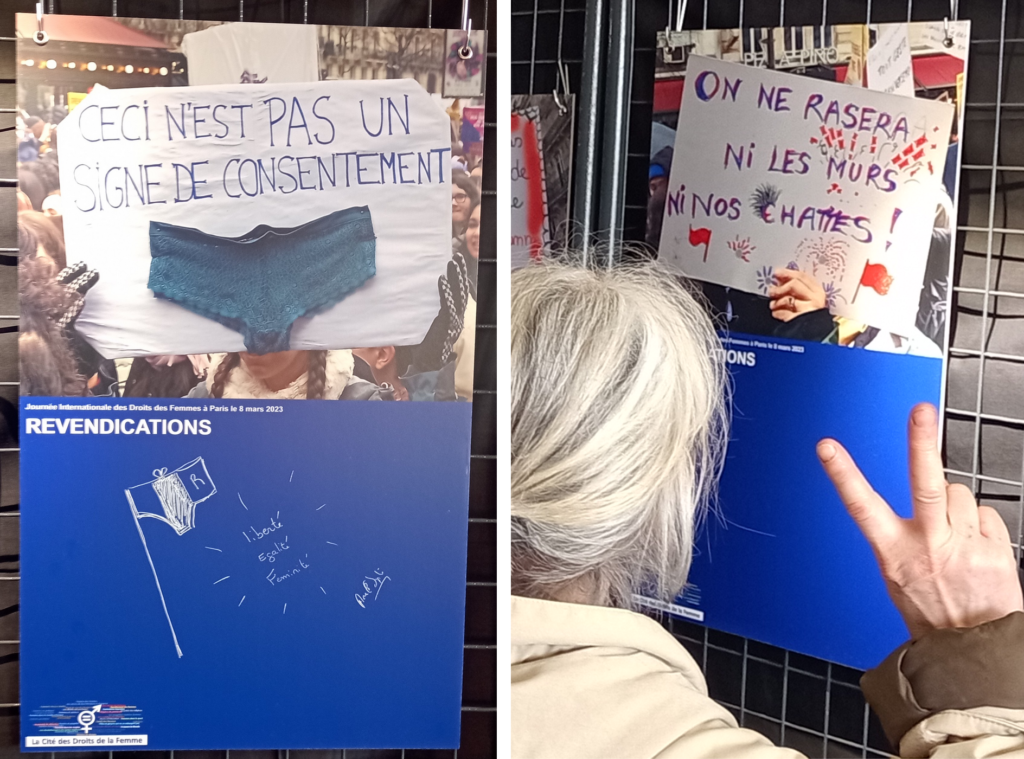 CECI N'EST PAS UN
SIGNE DE CONSENTEMENT
Journée Internationale des Droits des Femmes à Paris le 8 mars 2023
REVENDICATIONS
R
liberté
Egalité
Féminité
La Cité des Droits de la Femme
PIZZA PINO
ON NE RASERA
NI LES MURS
NI NOS CHATTES !
des Femmes à Paris le 8 mars 2023
ATIONS
La Cité des Droits de la Femme